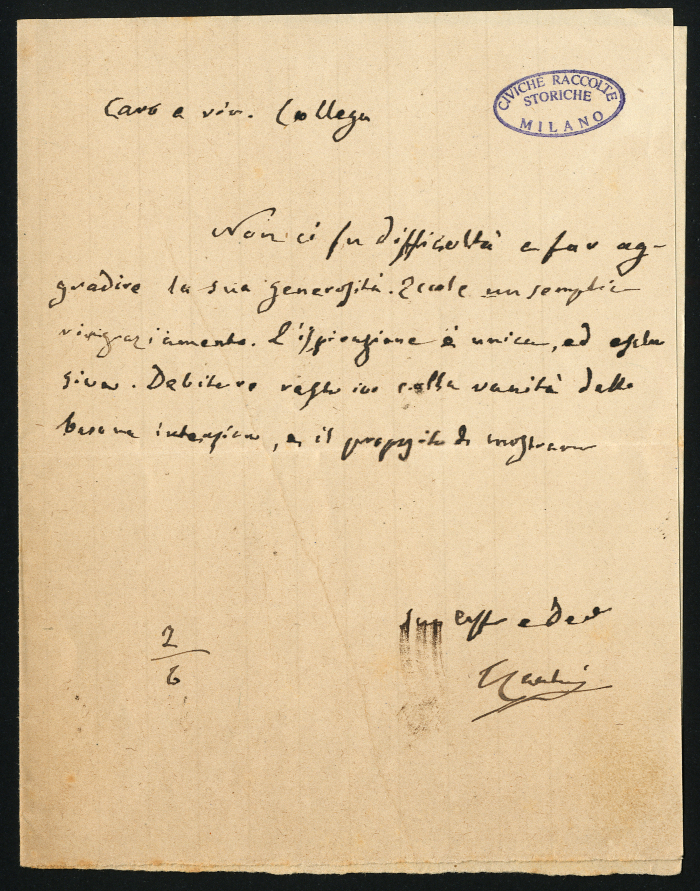 CIVICHE RACCOLTE
STORICHE
MILANO
Caro e riv. Collega
Non ci fu difficoltà a far ag-
gradire la sua generosità. Eccole un semplice
ringraziamento. L'ispirazione è unica, ed esclu
siva. Debitore resto io della vanità delle
buona intenzione, e il proposito di mostrarmi
Suo aff e Dev
2
6